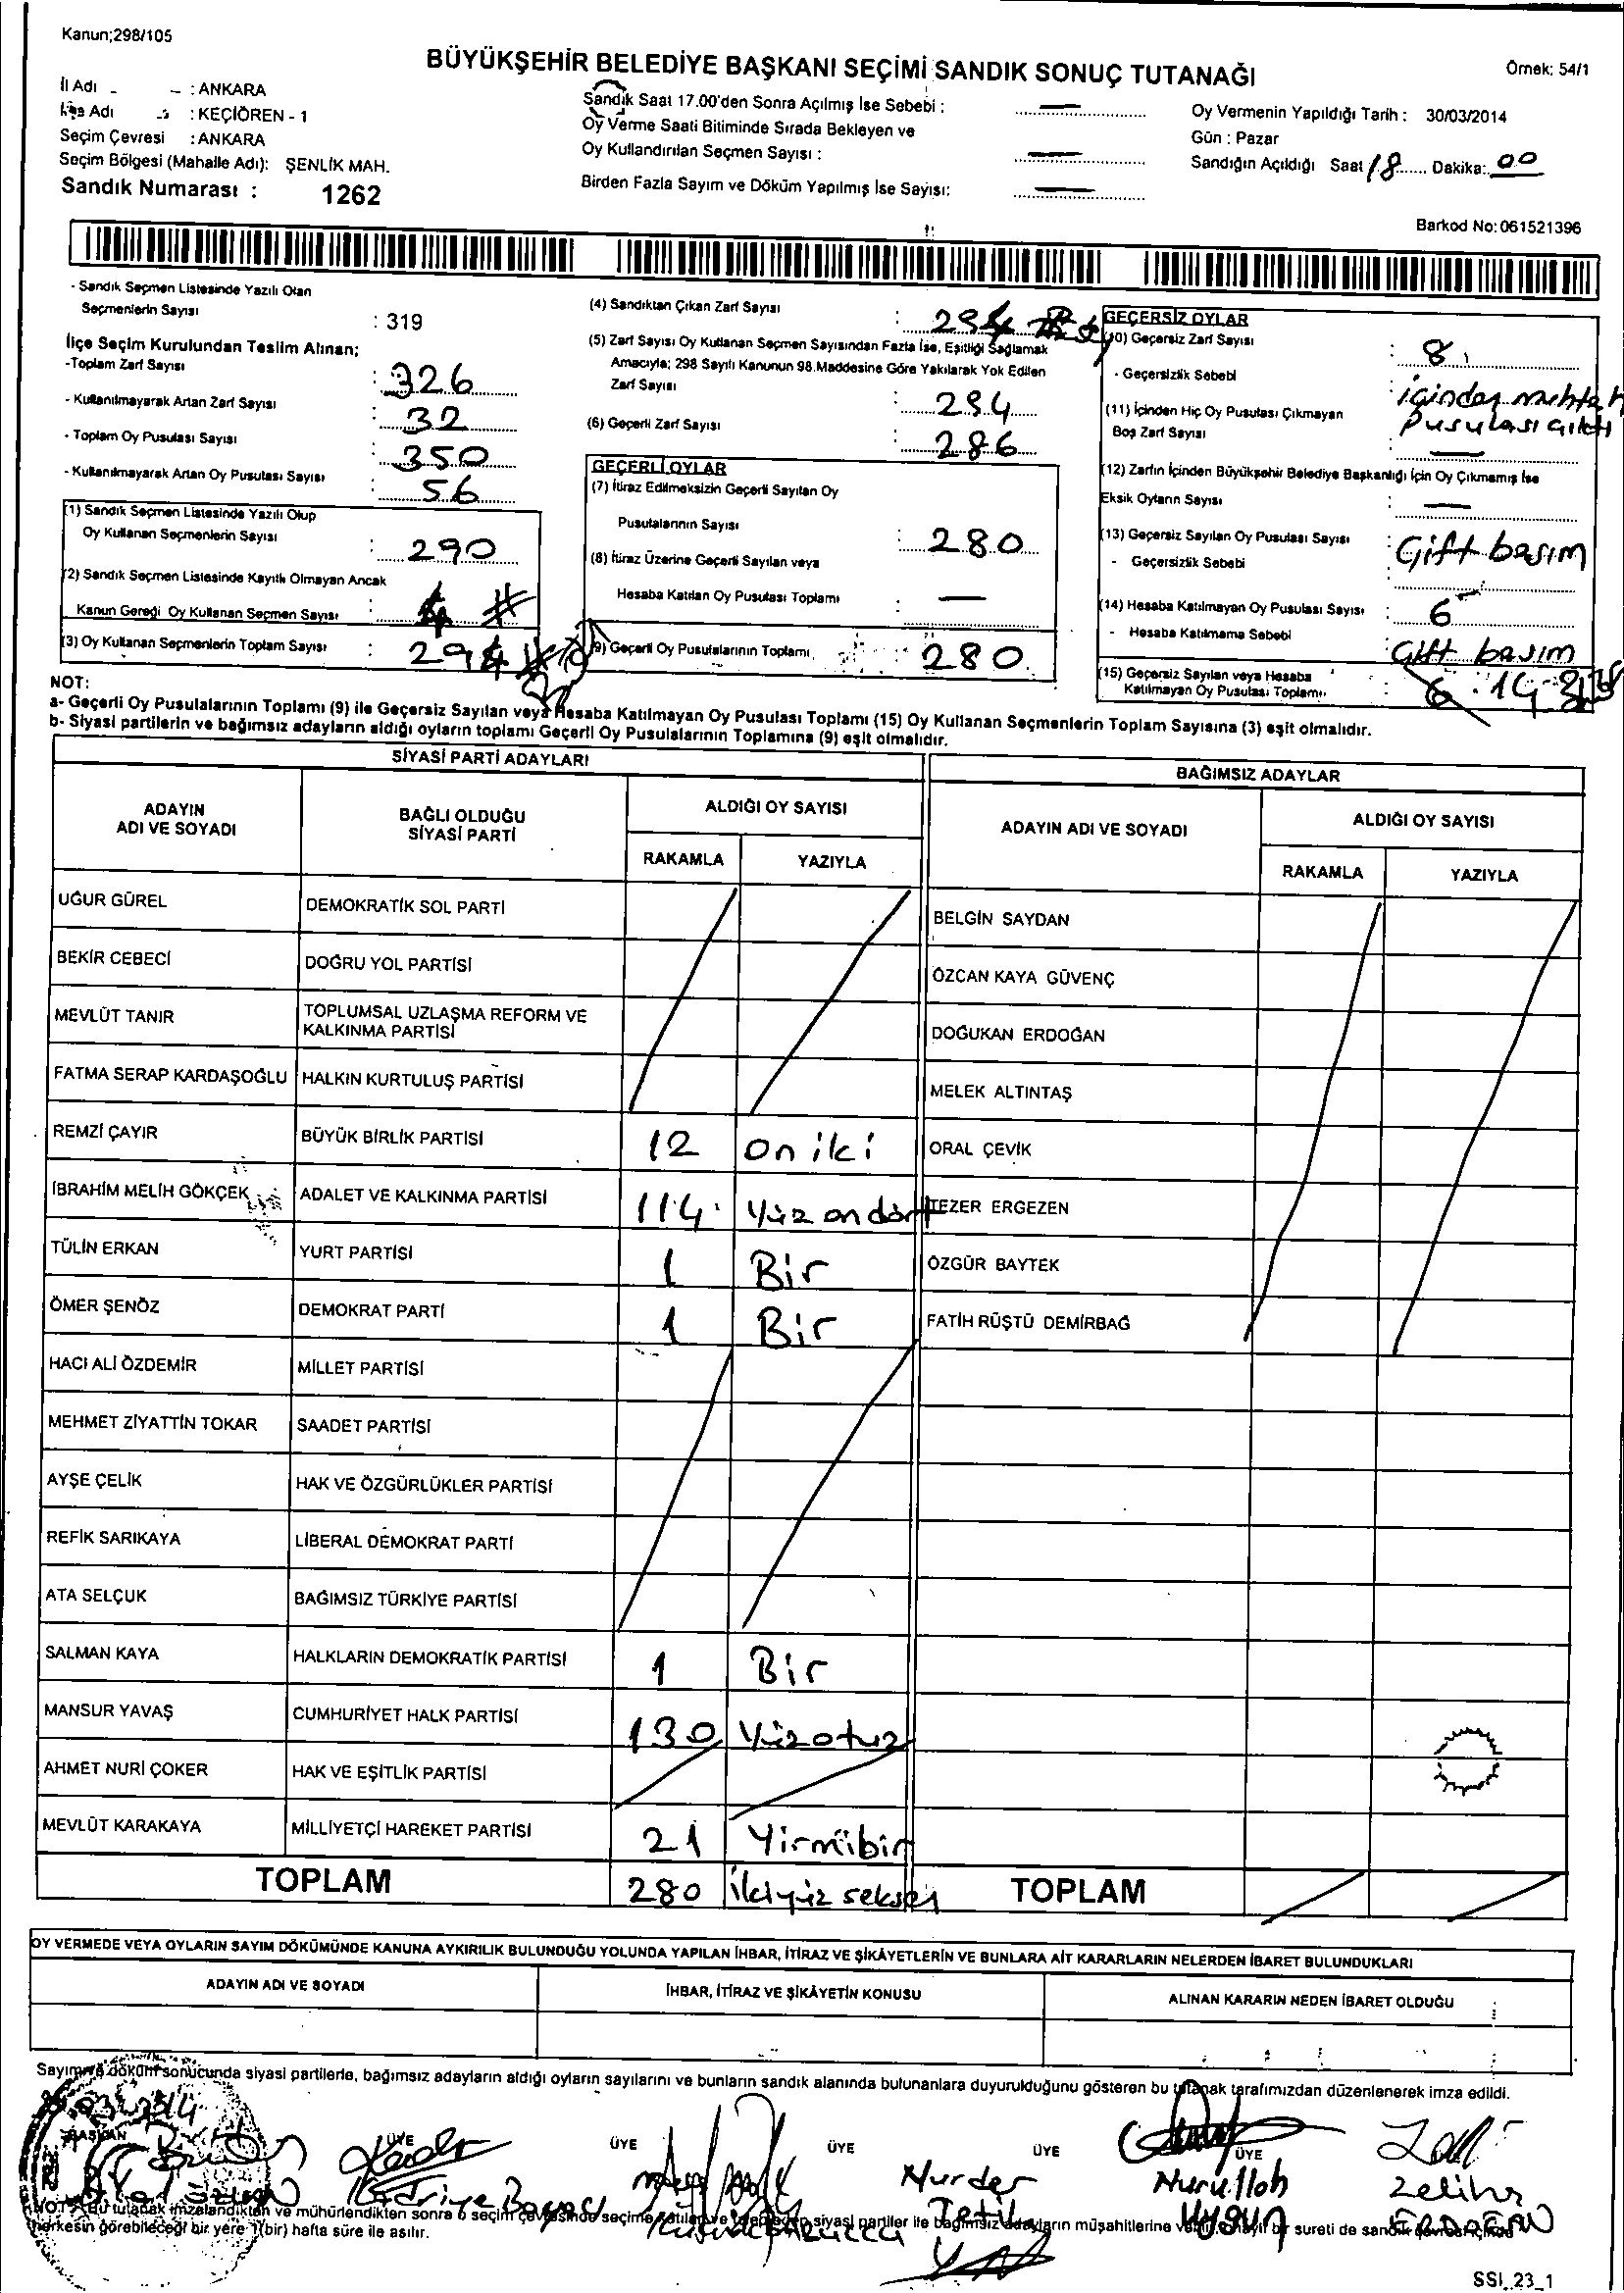 Kanun;298/105
BÜYÜKŞEHİR BELEDİYE BAŞKANI SEÇİMİ SANDIK SONUÇ TUTANAĞI
Örnek: 54/1
İl Adı : ANKARA
İlçe Adı : KEÇİÖREN - 1
Seçim Çevresi : ANKARA
Seçim Bölgesi (Mahalle Adı): ŞENLİK MAH.
Sandık Numarası : 1262
Sandık Saat 17.00'den Sonra Açılmış İse Sebebi : —
Oy Verme Saati Bitiminde Sırada Bekleyen ve
Oy Kullandırılan Seçmen Sayısı : —
Birden Fazla Sayım ve Döküm Yapılmış İse Sayısı: —
Oy Vermenin Yapıldığı Tarih : 30/03/2014
Gün : Pazar
Sandığın Açıldığı Saat 18 Dakika: 00
Barkod No: 061521396
- Sandık Seçmen Listesinde Yazılı Olan
Seçmenlerin Sayısı : 319
İlçe Seçim Kurulundan Teslim Alınan;
-Toplam Zarf Sayısı : 326
- Kullanılmayarak Artan Zarf Sayısı : 32
- Toplam Oy Pusulası Sayısı : 350
- Kullanılmayarak Artan Oy Pusulası Sayısı : 56
(1) Sandık Seçmen Listesinde Yazılı Olup
Oy Kullanan Seçmenlerin Sayısı : 290
(2) Sandık Seçmen Listesinde Kayıtlı Olmayan Ancak
Kanun Gereği Oy Kullanan Seçmen Sayısı : 4
(3) Oy Kullanan Seçmenlerin Toplam Sayısı : 294
(4) Sandıktan Çıkan Zarf Sayısı : 294
(5) Zarf Sayısı Oy Kullanan Seçmen Sayısından Fazla İse, Eşitliği Sağlamak
Amacıyla; 298 Sayılı Kanunun 98.Maddesine Göre Yakılarak Yok Edilen
Zarf Sayısı : 294
(6) Geçerli Zarf Sayısı : 286
GEÇERLİ OYLAR
(7) İtiraz Edilmeksizin Geçerli Sayılan Oy
Pusulalarının Sayısı : 280
(8) İtiraz Üzerine Geçerli Sayılan veya
Hesaba Katılan Oy Pusulası Toplamı : —
(9) Geçerli Oy Pusulalarının Toplamı : 280
GEÇERSİZ OYLAR
(10) Geçersiz Zarf Sayısı : 8
- Geçersizlik Sebebi : içinden muhtar
pusulası çıktı
(11) İçinden Hiç Oy Pusulası Çıkmayan
Boş Zarf Sayısı : —
(12) Zarfın İçinden Büyükşehir Belediye Başkanlığı İçin Oy Çıkmamış İse
Eksik Oyların Sayısı : —
(13) Geçersiz Sayılan Oy Pusulası Sayısı :
- Geçersizlik Sebebi Çift basım
(14) Hesaba Katılmayan Oy Pusulası Sayısı : 6
- Hesaba Katılmama Sebebi : Çift basım
(15) Geçersiz Sayılan veya Hesaba
Katılmayan Oy Pusulası Toplamı : 14
NOT:
a- Geçerli Oy Pusulalarının Toplamı (9) ile Geçersiz Sayılan veya Hesaba Katılmayan Oy Pusulası Toplamı (15) Oy Kullanan Seçmenlerin Toplam Sayısına (3) eşit olmalıdır.
b- Siyasi partilerin ve bağımsız adayların aldığı oyların toplamı Geçerli Oy Pusulalarının Toplamına (9) eşit olmalıdır.
SİYASİ PARTİ ADAYLARI
ADAYIN ADI VE SOYADI BAĞLI OLDUĞU SİYASİ PARTİ ALDIĞI OY SAYISI
RAKAMLA YAZIYLA
UĞUR GÜREL DEMOKRATİK SOL PARTİ
BEKİR CEBECİ DOĞRU YOL PARTİSİ
MEVLÜT TANIR TOPLUMSAL UZLAŞMA REFORM VE KALKINMA PARTİSİ
FATMA SERAP KARDAŞOĞLU HALKIN KURTULUŞ PARTİSİ
REMZİ ÇAYIR BÜYÜK BİRLİK PARTİSİ 12 on iki
İBRAHİM MELİH GÖKÇEK ADALET VE KALKINMA PARTİSİ 114 Yüz on dört
TÜLİN ERKAN YURT PARTİSİ 1 Bir
ÖMER ŞENÖZ DEMOKRAT PARTİ 1 Bir
HACI ALİ ÖZDEMİR MİLLET PARTİSİ
MEHMET ZİYATTİN TOKAR SAADET PARTİSİ
AYŞE ÇELİK HAK VE ÖZGÜRLÜKLER PARTİSİ
REFİK SARIKAYA LİBERAL DEMOKRAT PARTİ
ATA SELÇUK BAĞIMSIZ TÜRKİYE PARTİSİ
SALMAN KAYA HALKLARIN DEMOKRATİK PARTİSİ 1 Bir
MANSUR YAVAŞ CUMHURİYET HALK PARTİSİ 130 Yüzotuz
AHMET NURİ ÇOKER HAK VE EŞİTLİK PARTİSİ
MEVLÜT KARAKAYA MİLLİYETÇİ HAREKET PARTİSİ 21 Yirmibir
TOPLAM 280 ikiyüz seksen
BAĞIMSIZ ADAYLAR
ADAYIN ADI VE SOYADI ALDIĞI OY SAYISI
RAKAMLA YAZIYLA
BELGİN SAYDAN
ÖZCAN KAYA GÜVENÇ
DOĞUKAN ERDOĞAN
MELEK ALTINTAŞ
ORAL ÇEVİK
TEZER ERGEZEN
ÖZGÜR BAYTEK
FATİH RÜŞTÜ DEMİRBAĞ
TOPLAM
OY VERMEDE VEYA OYLARIN SAYIM DÖKÜMÜNDE KANUNA AYKIRILIK BULUNDUĞU YOLUNDA YAPILAN İHBAR, İTİRAZ VE ŞİKÂYETLERİN VE BUNLARA AİT KARARLARIN NELERDEN İBARET BULUNDUKLARI
ADAYIN ADI VE SOYADI İHBAR, İTİRAZ VE ŞİKÂYETİN KONUSU ALINAN KARARIN NEDEN İBARET OLDUĞU
Sayım ve döküm sonucunda siyasi partilerle, bağımsız adayların aldığı oyların sayılarını ve bunların sandık alanında bulunanlara duyurulduğunu gösteren bu tutanak tarafımızdan düzenlenerek imza edildi.
BAŞKAN ÜYE ÜYE ÜYE ÜYE ÜYE
Nurder Nurullah Zeliha
Fetih UYGUN ERDOĞAN
NOT: Bu tutanak imzalandıktan ve mühürlendikten sonra o seçim çevresinde seçime katılan ve siyasi partiler ile bağımsız adayların müşahitlerine bir sureti de sandık
herkesin görebileceği bir yere 1(bir) hafta süre ile asılır.
SSI_23_1